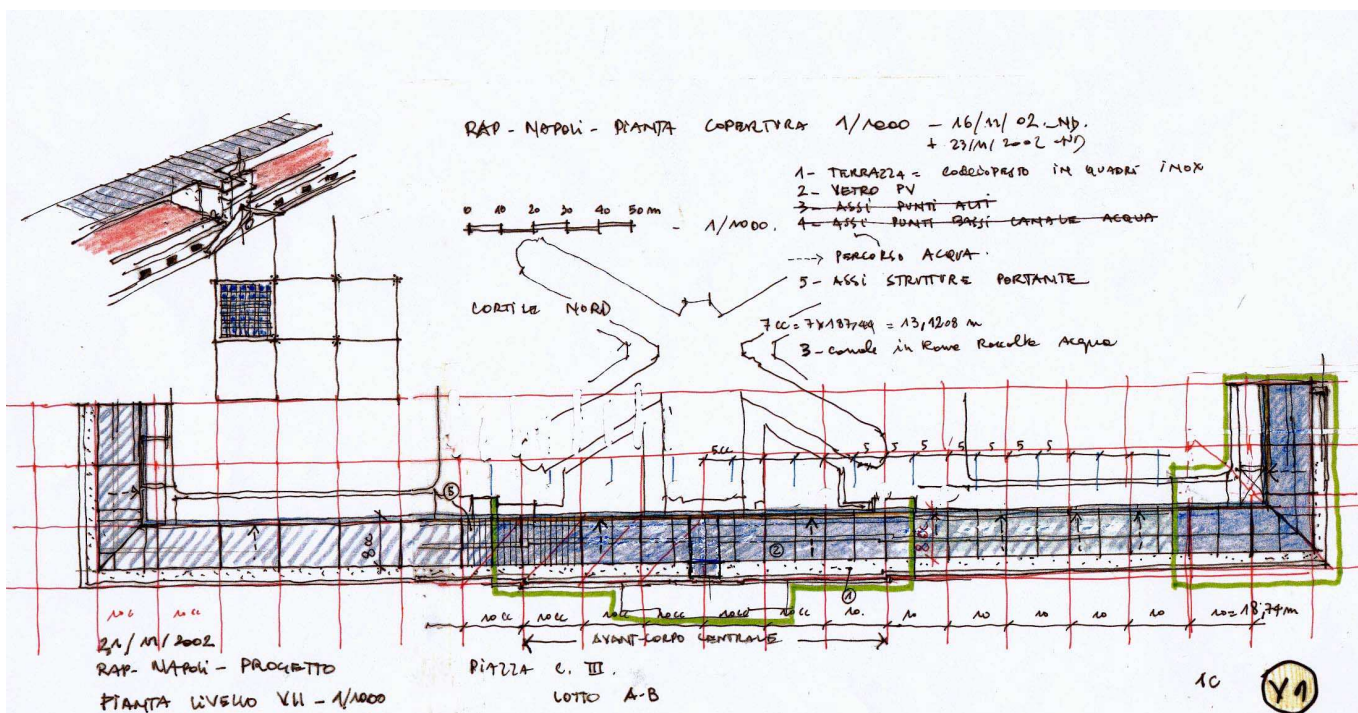 RAP - NAPOLI - PIANTA COPERTURA 1/1000 - 16/11/02 - ND.
+ 23/11/2002 - ND
1- TERRAZZA = IN QUADRI INOX
2- VETRO PV
3- ASSI PUNTI ALTI
4- ASSI PUNTI BASSI CANALE ACQUA
----> PERCORSO ACQUA.
5- ASSI STRUTTURE PORTANTE
0 10 20 30 40 50 m - 1/1000.
CORTILE NORD
7 cc = 7 x 187,44 = 13,1208 m
3- canale in Rame Raccolta Acqua
5cc 5 5 5 5 5 5 5
5
8cc 2 8cc
1
10cc 10cc 10cc 10cc 10cc 10cc 10cc 10cc 10. 10 10 10 10 10 10=18,74m
AVANT-CORPO CENTRALE
21/11/2002
RAP- NAPOLI - PROGETTO
PIANTA LIVELLO VII - 1/1000
PIAZZA C. III.
LOTTO A-B
1C Y1